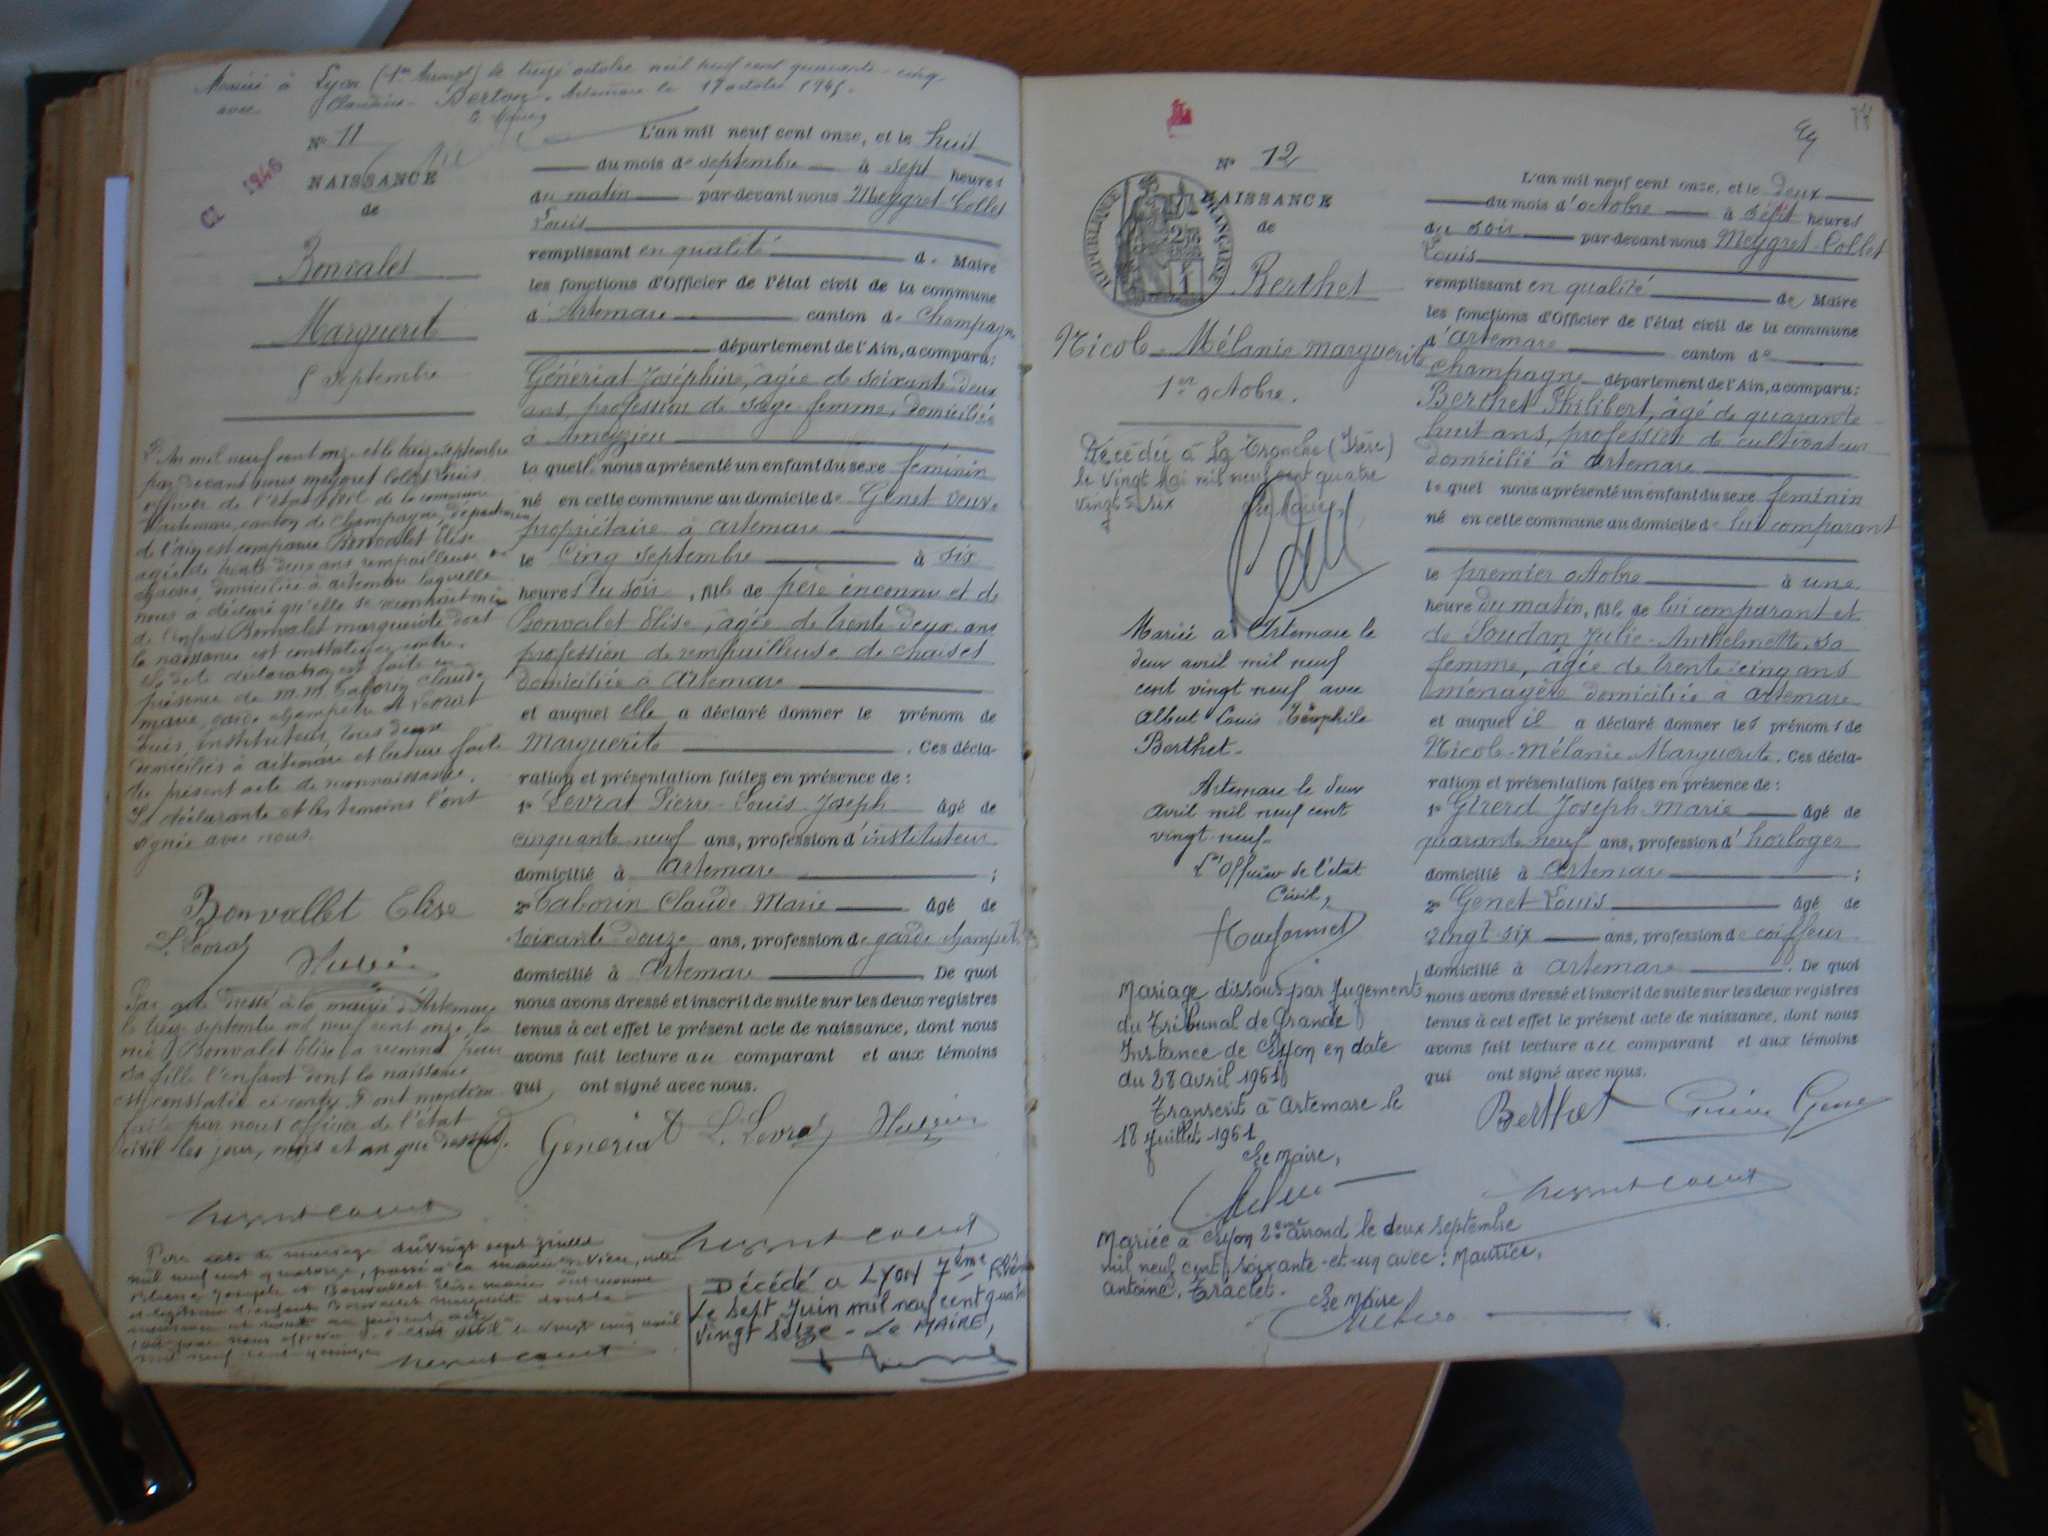 Mariée à Lyon (1er Arrondt) le treize octobre mil neuf cent quarante-cinq
avec Claudius Berton. Artemare le 17 octobre 1945.
No 11
CL 1946
NAISSANCE
de
Bonvalet
Marguerite
5 septembre
L'An mil neuf cent onze et le treize septembre
par devant nous meygret collet Louis
officier de l'état civil de la commune
d'artemare, canton de Champagne, département
de l'ain est comparue Bonvalet Elise
agée de trente deux ans rempailleuse de
chaises, domiciliée à artemare laquelle
nous a déclaré qu'elle se reconnait mère
de l'enfant Bonvalet marguerite dont
la naissance est constatée ci contre.
La dete déclaration est faite en
présence de m.m. Taborin Claude
marie, garde champetre et Levrat
Louis, instituteur, tous deux
domiciliés à artemare et lecture faite
du présent acte de reconnaissance,
La déclarante et les temoins l'ont
signée avec nous.
Bonvallet Elise
L. Levrat
Par acte dressé à la mairie d'Artemare
le treize septembre mil neuf cent onze, la
née Bonvalet Elise a reconnu pour
sa fille l'enfant dont la naissance
est constatée ci contre. Dont mention
faite par nous officier de l'état
civil les jour, mois et an que dessus.
Par acte de mariage du vingt sept juillet
mil neuf cent quatorze, passé à la mairie de
L'an mil neuf cent onze, et le huit
du mois de septembre à sept heures
du matin par-devant nous Meygret Collet
Louis
remplissant en qualité de Maire
les fonctions d'Officier de l'état civil de la commune
d'Artemare canton de Champagne
département de l'Ain, a comparu:
Géneriat Joséphine, âgée de soixante deux
ans, profession de sage-femme, domiciliée
à Ameyzieu
laquelle nous a présenté un enfant du sexe féminin
né en cette commune au domicile de Genet veuve
propriétaire à artemare
le cinq septembre à six
heures du soir, fille de père inconnu et de
Bonvalet Elise, âgée de trente deux ans
profession de rempailleuse de chaises
domiciliée à Artemare
et auquel elle a déclaré donner le prénom de
Marguerite. Ces décla-
ration et présentation faites en présence de:
1o Levrat Pierre-Louis Joseph âgé de
cinquante neuf ans, profession d'instituteur
domicilié à artemare;
2o Taborin Claude Marie âgé de
soixante douze ans, profession de garde champêt
domicilié à Artemare De quoi
nous avons dressé et inscrit de suite sur les deux registres
tenus à cet effet le présent acte de naissance, dont nous
avons fait lecture au comparant et aux témoins
qui ont signé avec nous.
Generiat L. Levrat
Décédé à LYON 7ème
Le sept Juin mil neuf cent quatre
Vingt seize - Le MAIRE,
No 12
NAISSANCE
de
REPUBLIQUE FRANÇAISE
Berthet
Nicole Mélanie marguerite
1er octobre.
Décédée à La Tronche (Isère)
le Vingt Mai mil neuf cent quatre
vingt-six Le Maire,
Mariée à Artemare le
deux avril mil neuf
cent vingt neuf avec
Albert Louis Théophile
Berthet.
Artemare le deux
avril mil neuf cent
vingt-neuf.
L'Officier de l'état
Civil,
Mariage dissous par jugement
du Tribunal de Grande
Instance de Lyon en date
du 28 avril 1961
Transcrit à Artemare le
18 Juillet 1961
Le Maire,
Mariée à Lyon 2ème arrond. le deux septembre
mil neuf cent soixante-et-un avec: Maurice,
antoine, Traclet.
Le Maire
L'an mil neuf cent onze, et le deux
du mois d'octobre à sept heures
du soir par-devant nous Meygret-Collet
Louis
remplissant en qualité de Maire
les fonctions d'Officier de l'état civil de la commune
d'artemare canton de
champagne département de l'Ain, a comparu:
Berthet Philibert, âgé de quarante
huit ans, profession de cultivateur
domicilié à artemare
lequel nous a présenté un enfant du sexe féminin
né en cette commune au domicile de lui comparant
le premier octobre à une
heure du matin, fille de lui comparant et
de Soudan Julie-Anthelmette, sa
femme, âgée de trente-cinq ans
ménagère domiciliée à artemare
et auquel il a déclaré donner les prénoms de
Nicole-Mélanie Marguerite. Ces décla-
ration et présentation faites en présence de:
1o Girerd Joseph-Marie âgé de
quarante neuf ans, profession d'horloger
domicilié à Artemare;
2o Genet Louis âgé de
vingt-six ans, profession de coiffeur
domicilié à artemare. De quoi
nous avons dressé et inscrit de suite sur les deux registres
tenus à cet effet le présent acte de naissance, dont nous
avons fait lecture au comparant et aux témoins
qui ont signé avec nous.
Berthet